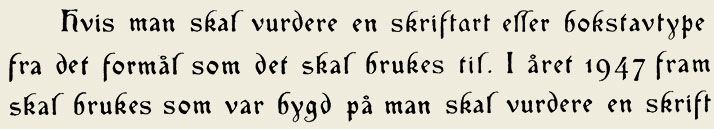 Hvis man skal vurdere en skriftart eller bokstavtype
fra det formål som det skal brukes til. I året 1947 fram
skal brukes som var bygd på man skal vurdere en skrift